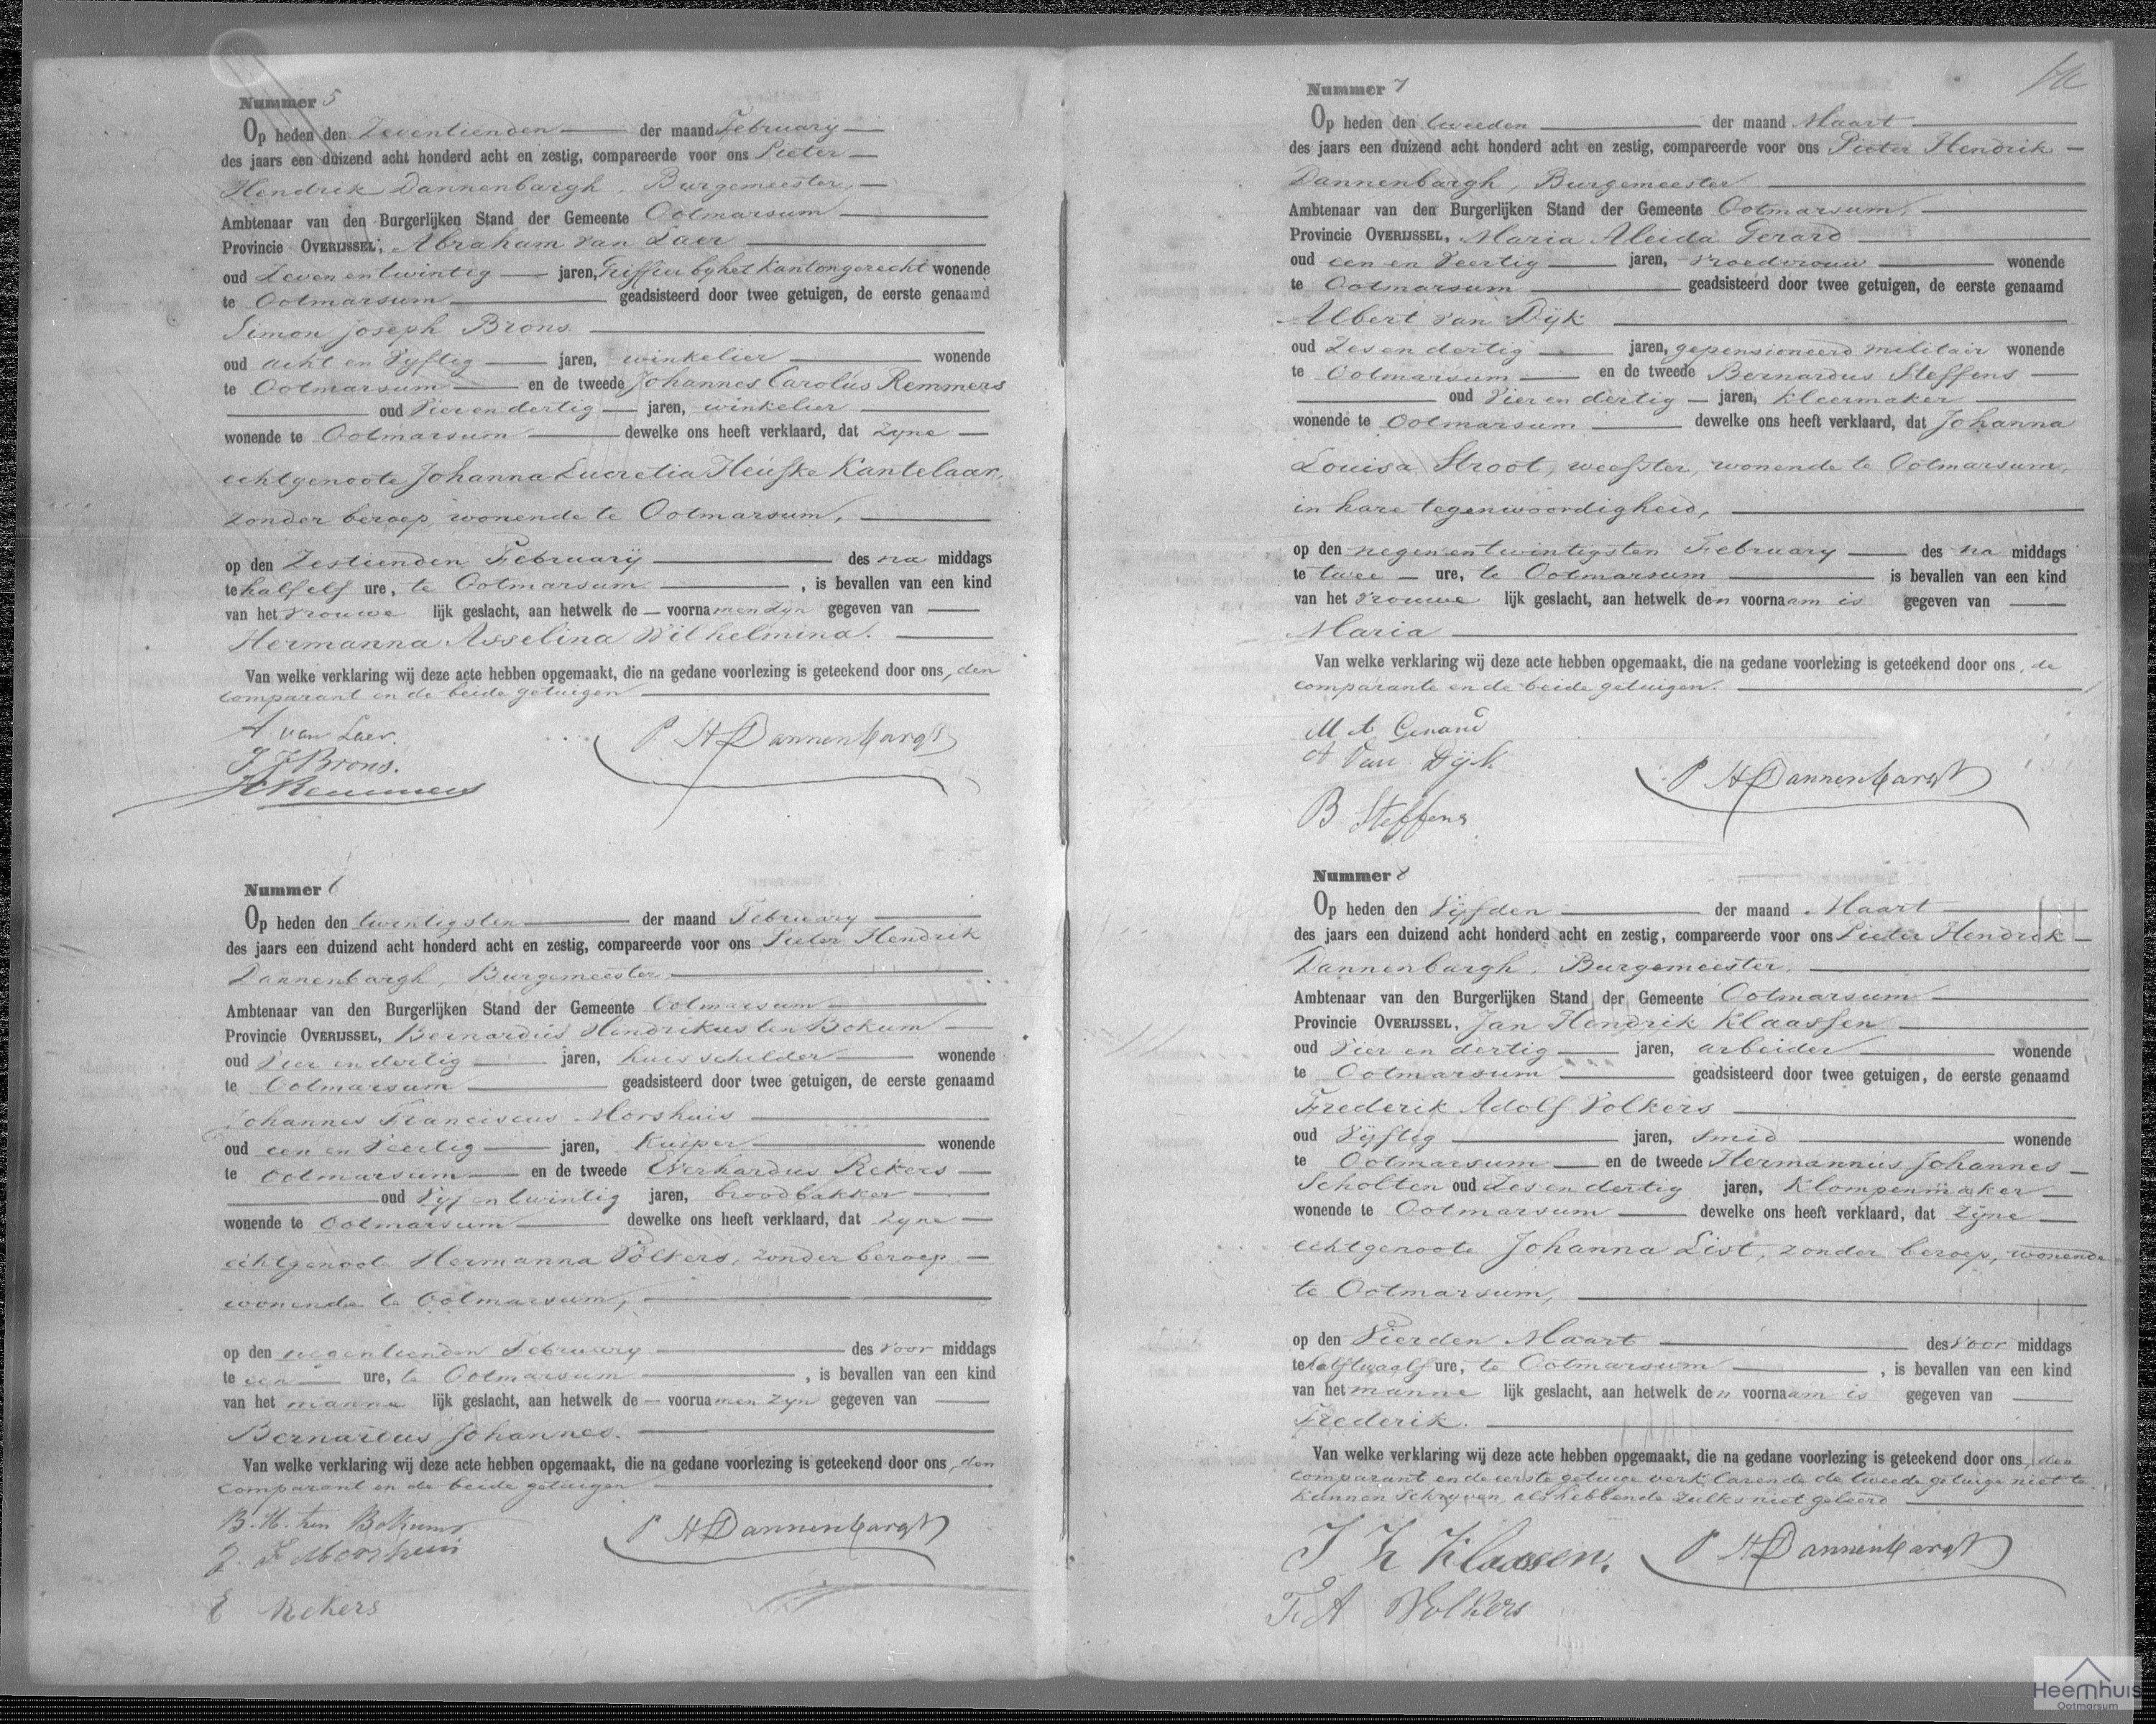 Nummer 5
Op heden den Zeventienden der maand February
des jaars een duizend acht honderd acht en zestig, compareerde voor ons Pieter
Hendrik Dannenbargh, Burgemeester,
Ambtenaar van den Burgerlijken Stand der Gemeente Ootmarsum
Provincie OVERIJSSEL, Abraham van Laer
oud Zeven en twintig jaren, Griffier by het Kantongerecht wonende
te Ootmarsum geadsisteerd door twee getuigen, de eerste genaamd
Simon Joseph Brons
oud acht en Vyftig jaren, winkelier wonende
te Ootmarsum en de tweede Johannes Carolus Remmers
oud Vier en dertig jaren, winkelier
wonende te Ootmarsum dewelke ons heeft verklaard, dat zyne
echtgenoote Johanna Lucretia Heufke Kantelaar,
zonder beroep, wonende te Ootmarsum,
op den Zestienden February des na middags
te half elf ure, te Ootmarsum, is bevallen van een kind
van het vrouwe lijk geslacht, aan hetwelk de voornamen zyn gegeven van
Hermanna Asselina Wilhelmina.
Van welke verklaring wij deze acte hebben opgemaakt, die na gedane voorlezing is geteekend door ons, den
comparant en de beide getuigen
A van Laer.
P H Dannenbargh
S J Brons.
JC Remmers
Nummer 6
Op heden den twintigsten der maand February
des jaars een duizend acht honderd acht en zestig, compareerde voor ons Pieter Hendrik
Dannenbargh, Burgemeester
Ambtenaar van den Burgerlijken Stand der Gemeente Ootmarsum
Provincie OVERIJSSEL, Bernardus Hendrikus ten Bokum
oud Vier en dertig jaren, huisschilder wonende
te Ootmarsum geadsisteerd door twee getuigen, de eerste genaamd
Johannes Franciscus Morshuis
oud een en Veertig jaren, Kuiper wonende
te Ootmarsum en de tweede Everhardus Rekers
oud Vyf en twintig jaren, broodbakker
wonende te Ootmarsum dewelke ons heeft verklaard, dat zyne
echtgenoote Hermanna Volkers, zonder beroep
wonende te Ootmarsum,
op den negentienden February des voor middags
te een ure, te Ootmarsum, is bevallen van een kind
van het manne lijk geslacht, aan hetwelk de voornamen zyn gegeven van
Bernardus Johannes.
Van welke verklaring wij deze acte hebben opgemaakt, die na gedane voorlezing is geteekend door ons, den
comparant en de beide getuigen
B. H. ten Bokum
P H Dannenbargh
J. F Morshuis
E Rekers
Nummer 7
Op heden den tweeden der maand Maart
des jaars een duizend acht honderd acht en zestig, compareerde voor ons Pieter Hendrik
Dannenbargh, Burgemeester
Ambtenaar van den Burgerlijken Stand der Gemeente Ootmarsum,
Provincie OVERIJSSEL, Maria Aleida Gerard
oud een en Veertig jaren, vroedvrouw wonende
te Ootmarsum geadsisteerd door twee getuigen, de eerste genaamd
Albert van Dijk
oud Zes en dertig jaren, gepensioneerd militair wonende
te Ootmarsum en de tweede Bernardus Steffens
oud Vier en dertig jaren, kleermaker
wonende te Ootmarsum dewelke ons heeft verklaard, dat Johanna
Louisa Stroot, weefster, wonende te Ootmarsum,
in hare tegenwoordigheid,
op den negen en twintigsten February des na middags
te twee ure, te Ootmarsum is bevallen van een kind
van het vrouwe lijk geslacht, aan hetwelk den voornaam is gegeven van
Maria
Van welke verklaring wij deze acte hebben opgemaakt, die na gedane voorlezing is geteekend door ons, de
comparante en de beide getuigen.
M A Gerard
A Van Dijk
P H Dannenbargh
B Steffens
Nummer 8
Op heden den Vyfden der maand Maart
des jaars een duizend acht honderd acht en zestig, compareerde voor ons Pieter Hendrik
Dannenbargh, Burgemeester,
Ambtenaar van den Burgerlijken Stand der Gemeente Ootmarsum
Provincie OVERIJSSEL, Jan Hendrik Klaassen
oud Vier en dertig jaren, arbeider wonende
te Ootmarsum geadsisteerd door twee getuigen, de eerste genaamd
Frederik Adolf Volkers
oud Vyftig jaren, smid wonende
te Ootmarsum en de tweede Hermannus Johannes
Scholten oud Zes en dertig jaren, Klompenmaker
wonende te Ootmarsum dewelke ons heeft verklaard, dat zyne
echtgenoote Johanna List, zonder beroep, wonende
te Ootmarsum,
op den Vierden Maart des voor middags
te half twaalf ure, te Ootmarsum, is bevallen van een kind
van het manne lijk geslacht, aan hetwelk den voornaam is gegeven van
Frederik.
Van welke verklaring wij deze acte hebben opgemaakt, die na gedane voorlezing is geteekend door ons, den
comparant en de eerste getuige verklarende de tweede getuige niet te
kunnen schryven, als hebbende zulks niet geleerd
J H Klaassen.
P H Dannenbargh
F A Volkers
Heemhuis
Ootmarsum